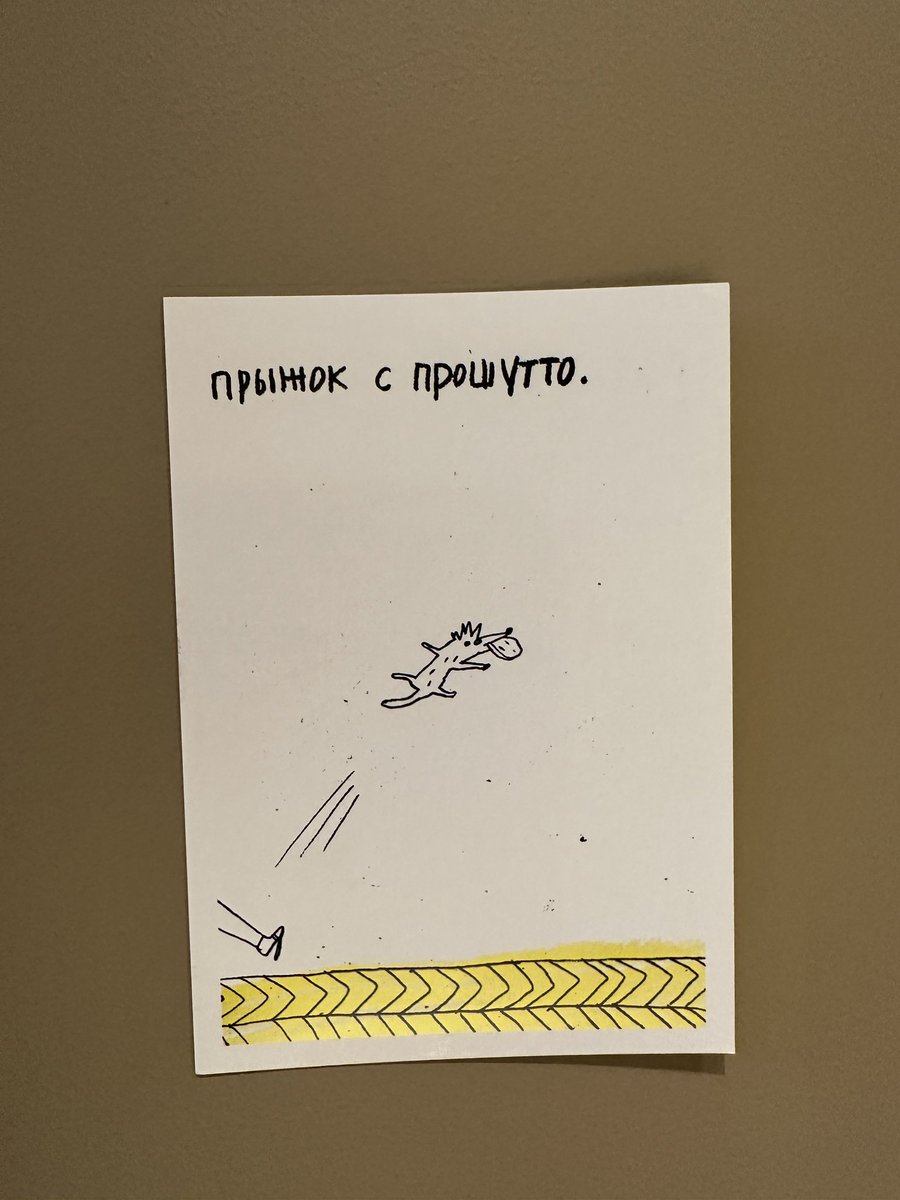 прыжок с прошутто.